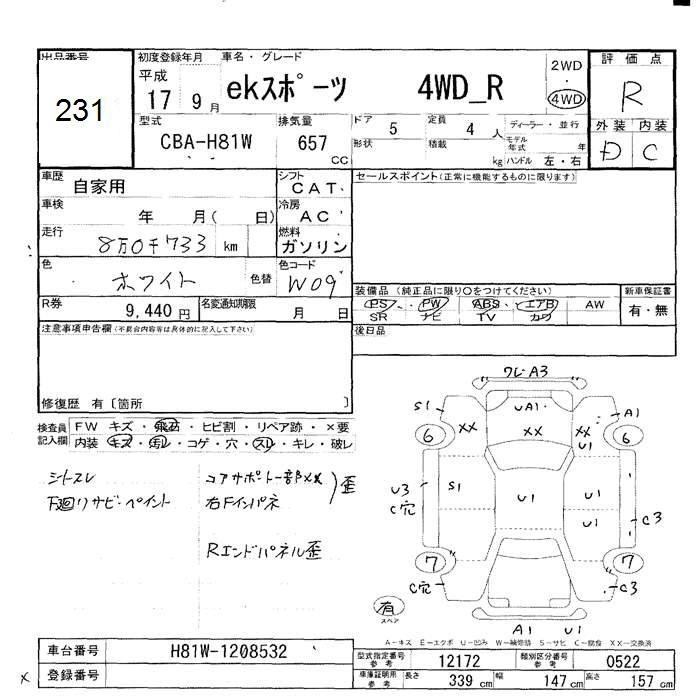 出品番号 初度登録年月 車名・グレード 2WD 評価点
231 平成 17 9月 ekスポーツ 4WD_R ・ 4WD R
型式 排気量 ドア 5 定員 4人 ディーラー・並行 外装 内装
CBA-H81W 657 CC 形状 積載 kg モデル年式 年 ハンドル 左・右 D C
車歴 自家用 シフト CAT セールスポイント(正常に機能するものに限ります)
車検 年 月( 日) 冷房 AC
走行 8万0千733 km 燃料 ガソリン
色 ホワイト 色替 色コード W09 装備品 (純正品に限り○をつけてください) 新車保証書
R券 9,440円 名変通知期限 月 日 PS PW ABS エアB AW 有・無
SR ナビ TV カワ
注意事項申告欄(不具合内容等は具体的に記入して下さい) 後日品
修復歴 有〔箇所 〕
検査員記入欄 FW キズ・飛石・ヒビ割・リペア跡・×要
内装 キズ・汚レ・コゲ・穴・スレ・キレ・破レ
シートスレ
下廻りサビ・ペイント
コアサポート一部XX
右Fインパネ
歪
Rエンドパネル歪
ワレ・A3
S1 UA1 A1
6 XX XX XX 6
U1
U3 S1 U1 U1 C3
C穴
7 7
C穴 C3
有 スペア
A1 U1
A-キズ E-エクボ U-凹み W-補修跡 S-サビ C-腐食 XX-交換済
車台番号 H81W-1208532 型式指定番号 参考 12172 類別区分番号 参考 0522
登録番号 車庫証明用 参考 長さ 339 cm 幅 147 cm 高さ 157 cm